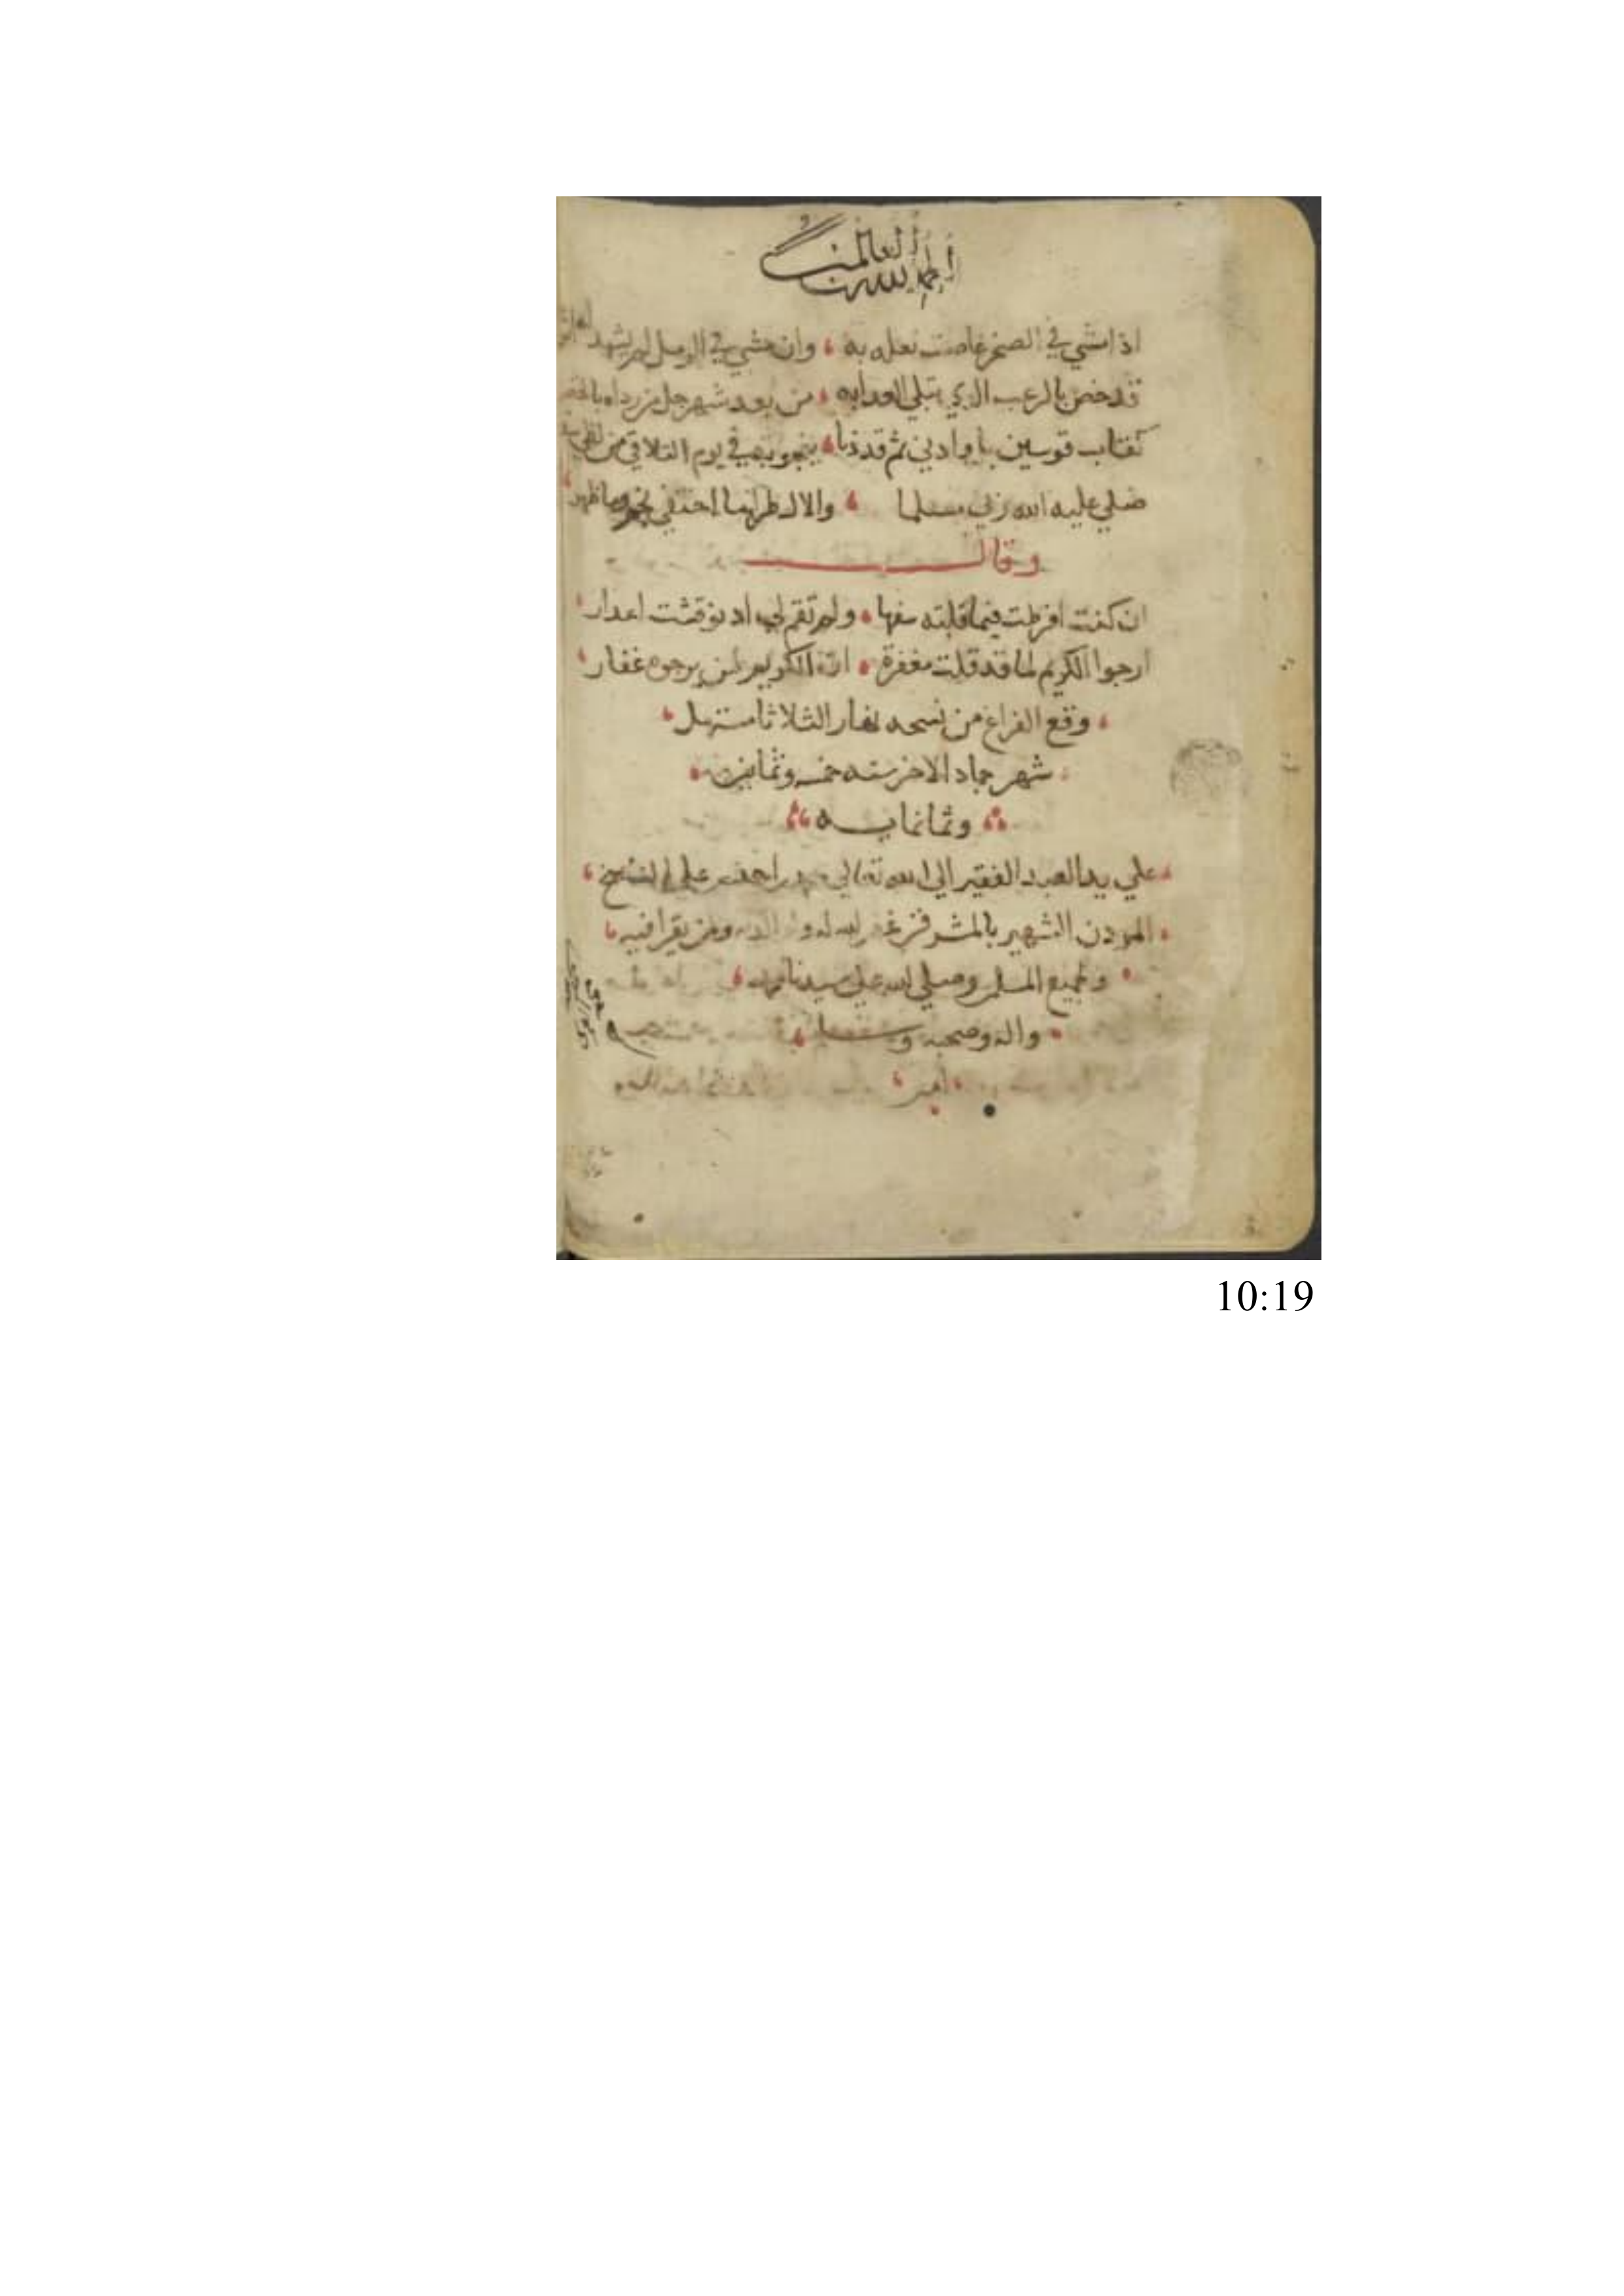 الحمد لله رب العالمين
اذا مشي في الصخر غاصت نعله به وان مشي في الرمل لم يشهد
قد خص بالرعب الذي يبلي العدا به من بعد شهر جل من
كقاب قوسين او ادني ثم قد دنا ينجو به في يوم التلاق من
صلي عليه الله ربي مسلما والال طرا ما اختفي نجم وما ظهر
وقال
ان كنت افرطت فيما قلته سفها ولم تقم لي اد نوقشت اعدار
ارجوا الكريم لما قد قلت مغفرة ان الكريم لمن يرجوه غفار
وقع الفراغ من نسخه نهار الثلاثا مستهل
شهر جماد الاخر سنه خمس وثمانين
وثمانمايه
علي يد العبد الفقير الي الله تعالي احمد بن علي
المودن الشهير بالمشرفي غفر الله له ولوالديه ومن يقرا فيه
ولجميع المسلمين وصلي الله علي سيدنا محمد
واله وصحبه وسلم
امين
10:19